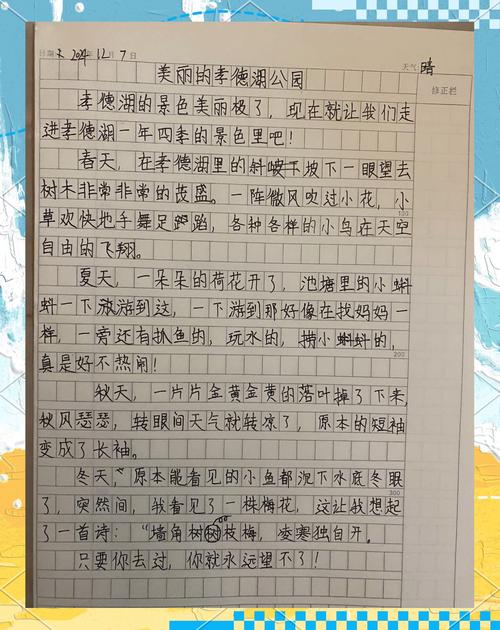 日期: 2024年12月7日 天气: 晴
修正栏
美丽的孝德湖公园
孝德湖的景色美丽极了，现在就让我们走
进孝德湖一年四季的景色里吧！
春天，在孝德湖里的斜坡下一眼望去
树木非常非常的茂盛。一阵微风吹过小花，小
100
草欢快地手舞足蹈，各种各样的小鸟在天空
自由的飞翔。
夏天，一朵朵的荷花开了，池塘里的小蝌
蚪一下游到这，一下游到那好像在找妈妈一
样，一旁还有扒鱼的，玩水的，捞小蝌蚪的，
200
真是好不热闹！
秋天，一片片金黄金黄的落叶掉了下来，
秋风瑟瑟，转眼间天气就转凉了，原本的短袖
变成了长袖。
冬天，原本能看见的小鱼都沉下水底冬眠
300
了，突然间，我看见了一株梅花，这让我想起
了一首诗：“墙角树枝梅，凌寒独自开。
只要你去过，你就永远望不了！